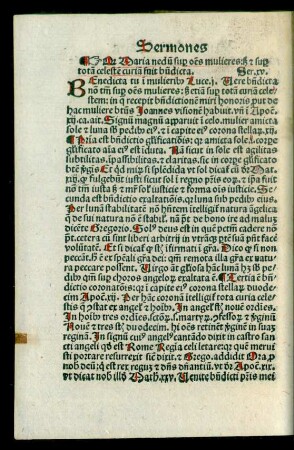 Sermones
¶ Qꝛ Maria nedũ sup oẽs mulieres: sꝫ ⁊ sup
totã celestẽ curiã fuit bñdicta. Ser.xv.
Benedicta tu ĩ mulierib⁹ Luce.j. Vere bñdicta
nõ tm̃ sup oẽs mulieres: sꝫ etiã sup totã curiã cele-
stem: in q̃ recepit bñdictionẽ miri honoris. put de
hac muliere bt̃us Joannes visionẽ habuit. vñ ĩ Apoẽ.
xij.ca.ait. Signũ magnũ apparuit ĩ celo. mulier amicta
sole ⁊ luna sb̃ pedib⁹ ei⁹. ⁊ ĩ capite ei⁹ corona stellaꝝ.xij.
Pria est bñdictio glificatiõis: qꝛ amicta sole. ĩ corpe
glificato aĩa ei⁹ est dicta. Nã sicut in sole est agilitas
subtilitas. ĩpassibilitas. ⁊ claritas. sic in corpe glificato
btẽ ꝟgis
xiij. qꝛ fulgebũt iusti sicut sol ĩ regno pr̃is eoꝝ. ⁊ ip̃a fuit
nõ tm̃ iusta sꝫ ⁊ mr̃ solꝰ iusticie ⁊ forma oĩs iusticie. Se-
cunda est bñdictio exaltatiõis. qꝛ luna sub pedib⁹ eius.
Per lunã stabilitatẽ nõ hñtem ĩtelligit̃ natura ãgelica
q̃ de sui natura nõ ẽ stabil̃. nã põt̃ de bono ire ad malũ
dicẽte Gregorio. Sol⁹ deus est in quẽ pctm̃ cadere nõ
põt. cetera cũ sint liberi arbitrij in vtrãqꝫ ptẽ suã pñt face
volutatẽ. Et si dicat̃ qꝫ sũt firmati ĩ gra. Dico qꝫ si non
peccãt. hoc ẽ ex spẽali gr̃a dei: qm̃ remota illa gra ex natu-
ra peccare possent. Virgo aũt gl̃iosa hãc lunã hꝫ sb̃ pe-
dib⁹ qꝛ sup choros angeloꝝ exaltata ẽ. ¶ Tertia ẽ bñ-
dictio coronatiõis: qꝛ ĩ capite ei⁹ corona stellaꝝ duode-
cim Apoẽ.xij. Per hãc coronã ĩtelligit̃ tota curia celes-
tis q̃ ↄstat ex angel̃ ⁊ hoĩb⁹. In angel̃ sũt nouẽ ordĩes.
In hoĩb⁹ tres ordĩes. sctoꝝ .s. martyꝝ. ↄfessoꝝ ⁊ ꝟginũ
Nouẽ ⁊ tres sũt duodecim. hi oẽs retinẽt ꝟginẽ in suaꝫ
reginã. In signũ cui⁹ angel̃i cantãdo dixit in castro san-
cti angeli qd̃ est Rome Regina celi letare: qꝛ quẽ merui-
sti portare resurrexit sic̃ dixit. ⁊ Grego. addidit Ora ꝓ
nob̃ deũ: qd̃ est rex regũ ⁊ dñs dñantiũ. vt dꝛ Apoẽ.xix.
vt dicat nob̃ illd̃ Math.xxv. Venite bñdicti pr̃is mei